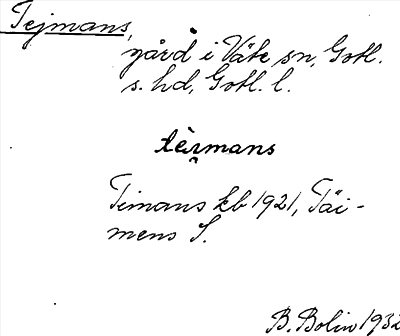 Tejmans,
gård i Väte sn, Gotl.
s. hd, Gotl. l.
tèi̯mans
Timans kb 1921, Täi-
mens S.
B. Bolin 1932